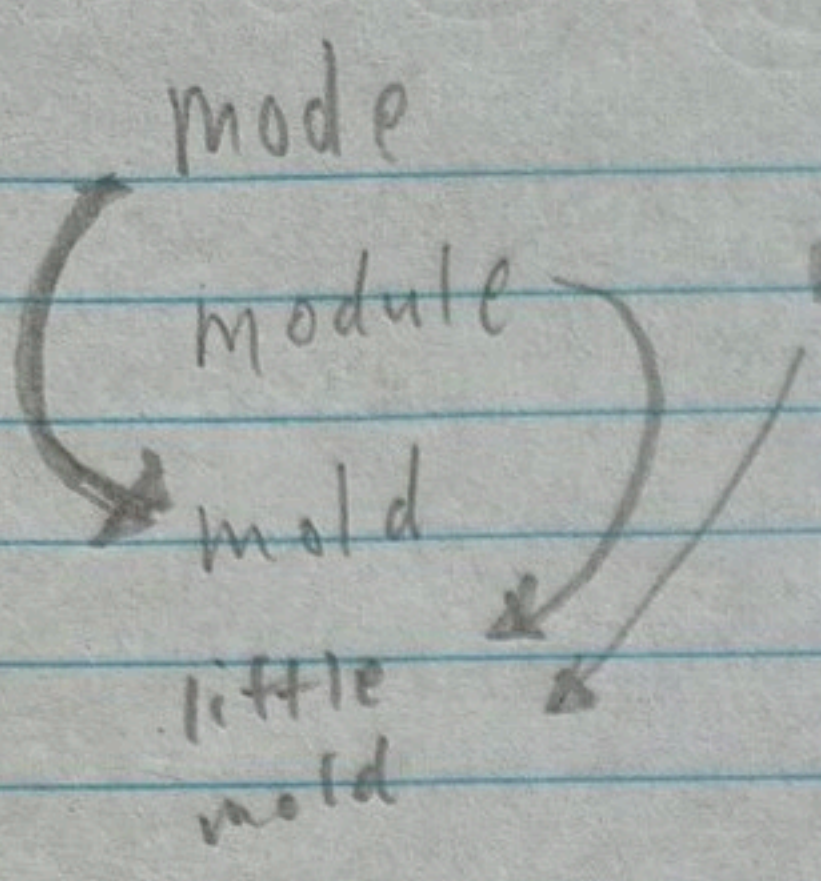 mode
module
mold
little
mold